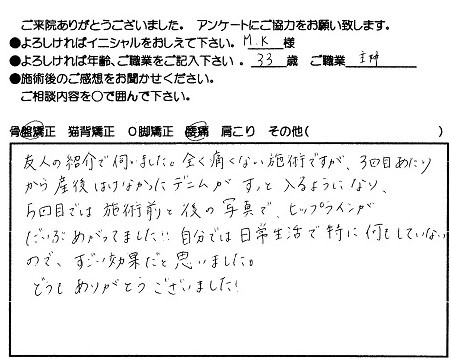 ご来院ありがとうございました。 アンケートにご協力をお願い致します。
●よろしければイニシャルをおしえて下さい。 M.K 様
●よろしければ年齢、ご職業をご記入下さい。 33 歳 ご職業 主婦
●施術後のご感想をお聞かせください。
ご相談内容を○で囲んで下さい。
骨盤矯正 猫背矯正 O脚矯正 腰痛 肩こり その他( )
友人の紹介で伺いました。全く痛くない施術ですが、3回目あたり
から産後はけなかったデニムがすっと入るようになり、
5回目では施術前と後の写真で、ヒップラインが
だいぶあがってました!! 自分では日常生活で特に何もしていない
ので、すごい効果だと思いました。
どうもありがとうございました!